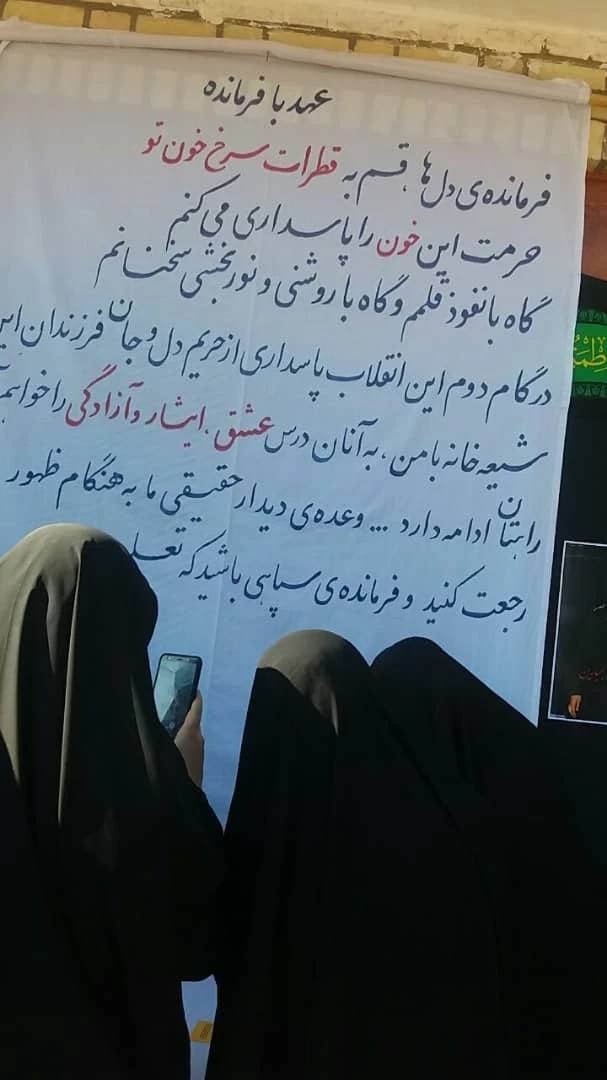 عهد با فرمانده
فرمانده‌ی دل‌ها، قسم به قطرات سرخ خون تو
حرمت این خون را پاسداری می‌کنم
گاه با نفوذ قلمم و گاه با روشنی و نوربخشی سخنانم
در گام دوم این انقلاب پاسداری از حریم دل و جان فرزندان این
شیعه خانه با من، به آنان درس عشق، ایثار و آزادگی را خواهم
راهتان ادامه دارد ... وعده‌ی دیدار حقیقی ما به هنگام ظهور
رجعت کنید و فرمانده‌ی سپاهی باشید که